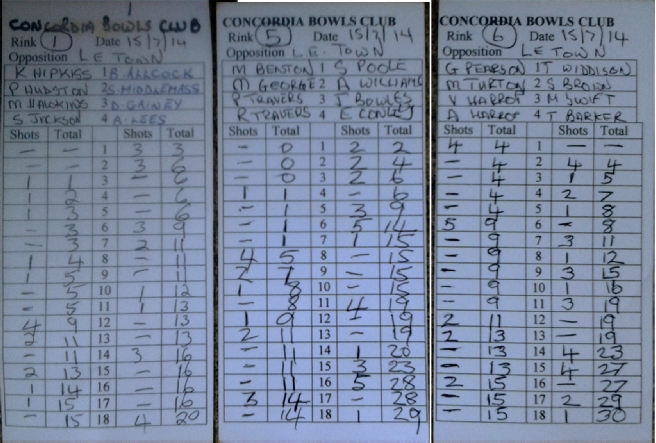 1
CONCORDIA BOWLS CLUB
Rink 1 Date 15/7/14
Opposition L E TOWN
K HIPKISS 1 B ALLCOCK
P HUDSTON 2 S MIDDLEMASS
M HAWKINS 3 D GAINEY
S JACKSON 4 A. LEES
Shots Total Shots Total
— — 1 3 3
— — 2 3 6
1 1 3 — 6
1 2 4 — 6
1 3 5 — 6
— 3 6 3 9
— 3 7 2 11
1 4 8 — 11
1 5 9 — 11
— 5 10 1 12
— 5 11 1 13
4 9 12 — 13
2 11 13 — 13
— 11 14 3 16
2 13 15 — 16
1 14 16 — 16
1 15 17 — 16
— 15 18 4 20
CONCORDIA BOWLS CLUB
Rink 5 Date 15/7/14
Opposition L.E. TOWN
M BENSTON 1 S POOLE
M GEORGE 2 A WILLIAMS
P TRAVERS 3 J BOWLES
R TRAVERS 4 E CONLEY
Shots Total Shots Total
— 0 1 2 2
— 0 2 2 4
— 0 3 2 6
1 1 4 — 6
— 1 5 3 9
— 1 6 5 14
— 1 7 1 15
4 5 8 — 15
2 7 9 — 15
1 8 10 — 15
— 8 11 4 19
1 9 12 — 19
2 11 13 — 19
— 11 14 1 20
— 11 15 3 23
— 11 16 5 28
3 14 17 — 28
— 14 18 1 29
CONCORDIA BOWLS CLUB
Rink 6 Date 15/7/14
Opposition L E TOWN
G PEARSON 1 T WIDDISON
M TURTON 2 S BROWN
V HARROT 3 M SWIFT
A HARROT 4 T BARKER
Shots Total Shots Total
4 4 1 — —
— 4 2 4 4
— 4 3 1 5
— 4 4 2 7
— 4 5 1 8
5 9 6 — 8
— 9 7 3 11
— 9 8 1 12
— 9 9 3 15
— 9 10 1 16
— 9 11 3 19
2 11 12 — 19
2 13 13 — 19
— 13 14 4 23
— 13 15 4 27
2 15 16 — 27
— 15 17 2 29
— 15 18 1 30